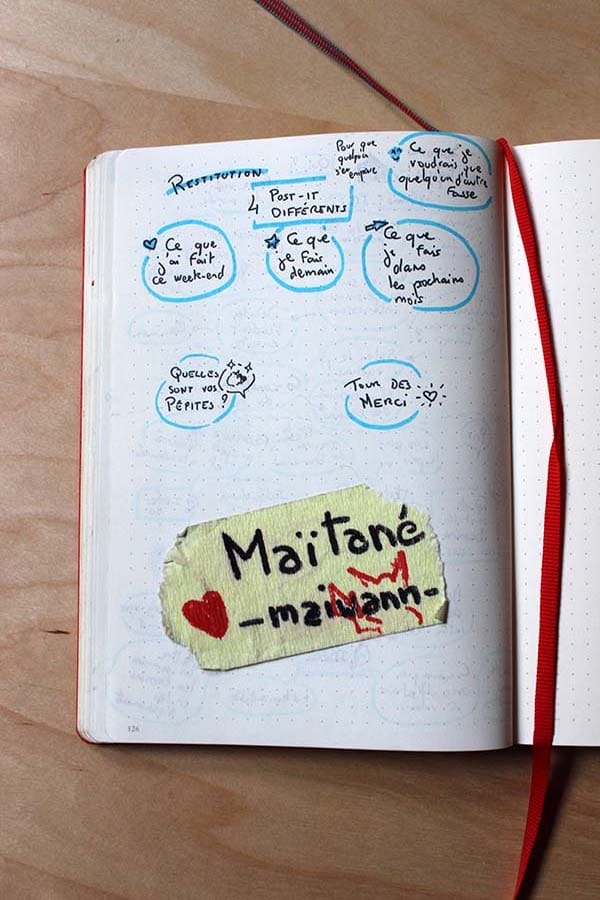 RESTITUTION
4 POST-IT
DIFFÉRENTS
Pour que
quelqu'un
s'en empare
Ce que je
voudrais que
quelqu'un d'autre
fasse
Ce que
j'ai fait
ce week-end
Ce que
je fais
demain
Ce que
je fais
dans
les pochains
mois
QUELLES
SONT VOS
PÉPITES ?
TOUR DES
MERCI
Maïtané
-maiwann-
126